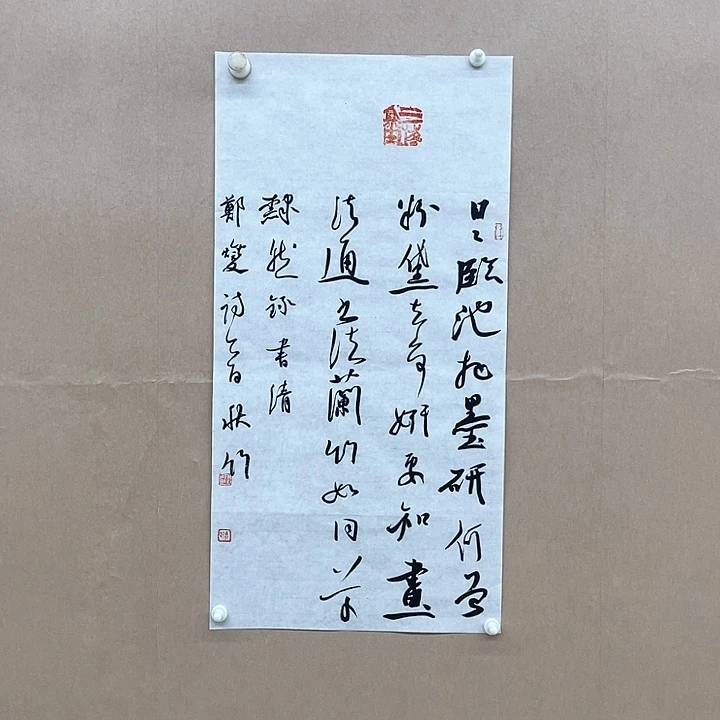 日〻臨池把墨研何曾
粉黛去爭妍要知畫
法通書法蘭竹如同草
隸然錄書清
鄭燮詩乙首秋竹